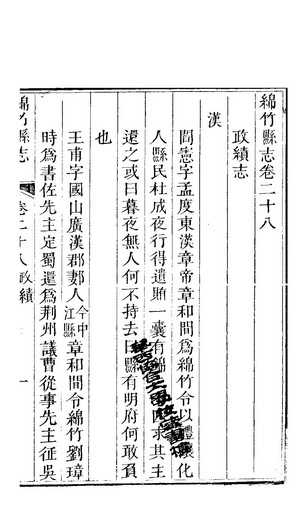 綿竹縣志卷二十八
政績志
漢
閻憲字孟度東漢章帝章和間爲綿竹令以禮讓化
人縣民杜成夜行得遺賄一囊有錦求其主
還之或曰暮夜無人何不持去曰縣有明府何敢負
也
王甫字國山廣漢郡郪人今中江縣章和間令綿竹劉璋
時爲書佐先主定蜀還爲荆州議曹從事先主征吳
綿竹縣志 卷二十八政績 一